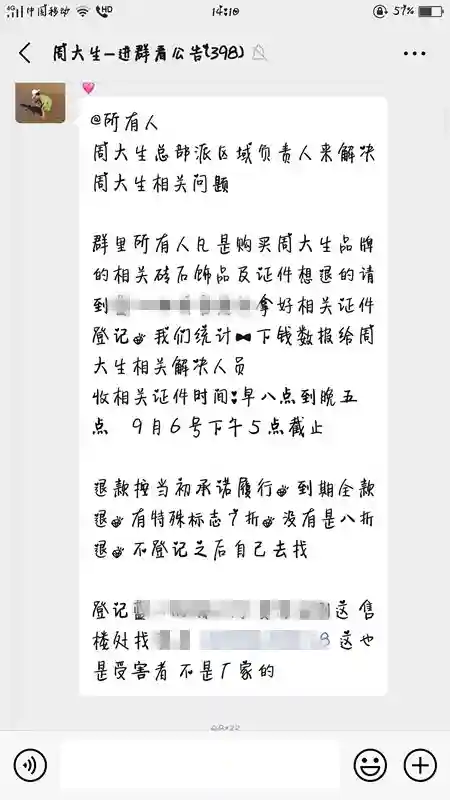 4G 中国移动 HD 14:10 57%
周大生一进群看公告(398)
@所有人
周大生总部派区域负责人来解决
周大生相关问题
群里所有人凡是购买周大生品牌
的相关砖石饰品及证件想退的请
到 拿好相关证件
登记 我们统计 下钱数报给周
大生相关解决人员
收相关证件时间:早八点到晚五
点 9月6号下午5点截止
退款按当初承诺履行 到期全款
退 有特殊标志7折 没有是八折
退 不登记之后自己去找
登记 这售
楼处找 这也
是受害者 不是厂家的